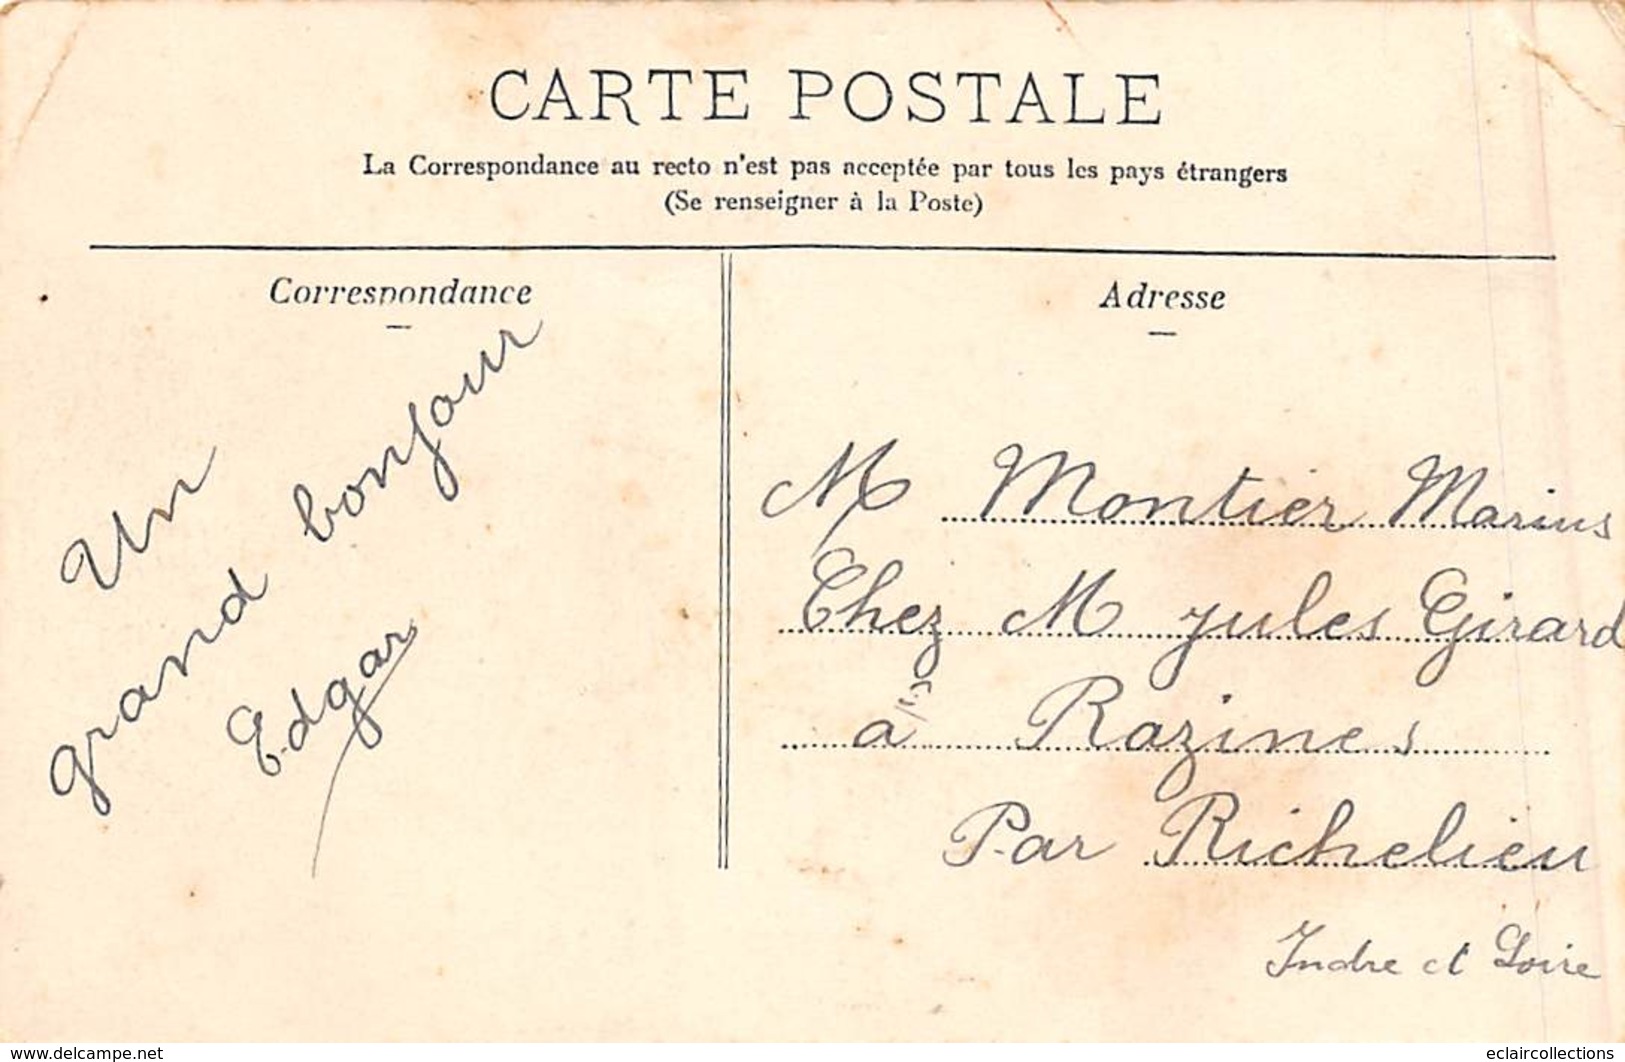 CARTE POSTALE
La Correspondance au recto n'est pas acceptée par tous les pays étrangers
(Se renseigner à la Poste)
Correspondance
Un
grand bonjour
Edgar
Adresse
M Montier Marius
Chez M Jules Girard
a Razines
Par Richelieu
Indre et Loire
www.delcampe.net
eclaircollections